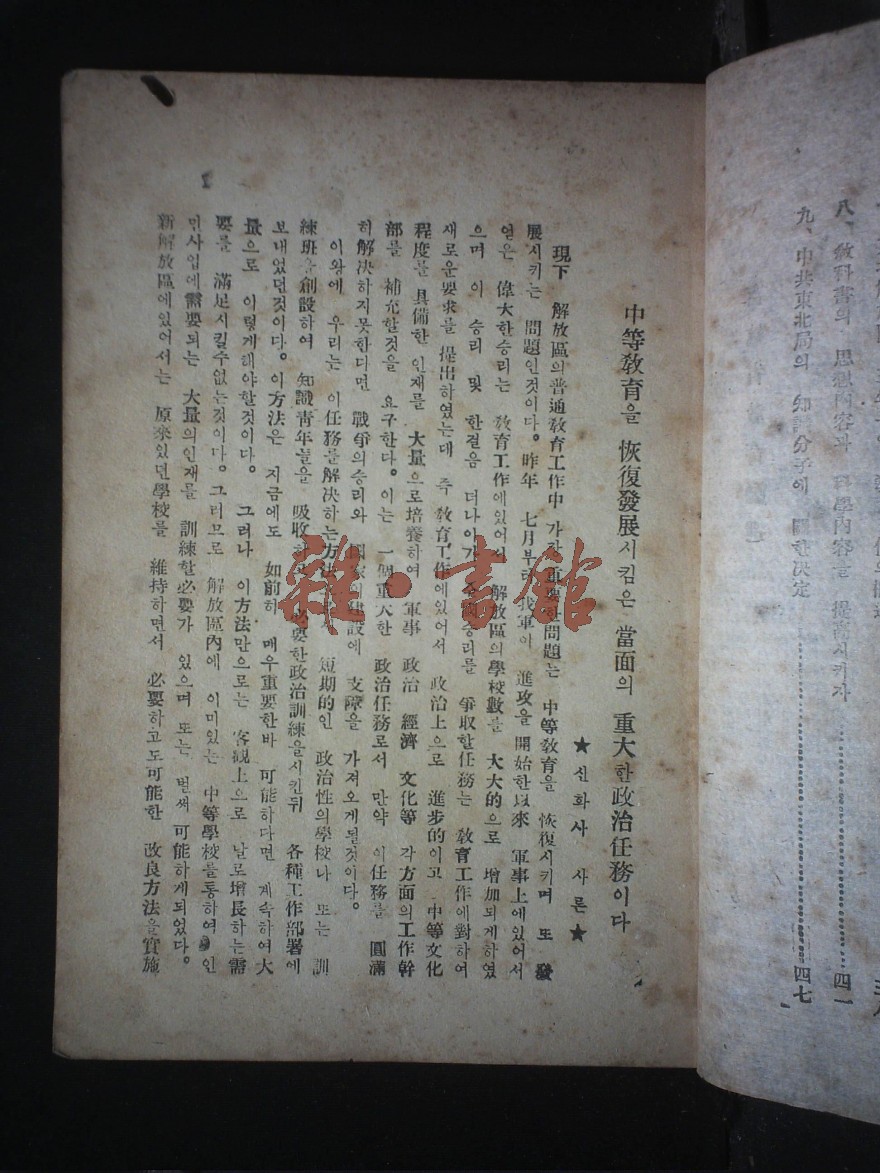 八、敎科書의 思想內容과 科學內容을 提高시키자…………四一
九、中共東北局의 知識分子에 關한決定…………四七
中等敎育을 恢復發展시킴은 當面의 重大한政治任務이다
★신화사 사론★
現下 解放區의普通敎育工作中 가장 重要한問題는 中等敎育을 恢復시키며 또 發
展시키는 問題인것이다。昨年 七月부터 我軍이 進攻을 開始한以來 軍事上에있어서
얻은 偉大한승리는 敎育工作에있어서 解放區의學校數를 大大的으로 增加되게하였
으며 이 승리 및 한걸음 더나아가 승리를 爭取할任務는 敎育工作에對하여
새로운要求를 提出하였는데 즉 敎育工作에있어서 政治上으로 進步的이고 中等文化
程度를 具備한 인재를 大量으로培養하여 軍事 政治 經濟 文化等 각方面의工作幹
部를 補充할것을 요구한다。이는 一個重大한 政治任務로서 만약 이任務를 圓滿
히解决하지못한다면 戰爭의승리와 國家의建設에 支障을 가져오게될것이다。
이왕에 우리는 이任務를解决하는方法 短期的인 政治性의學校나 또는 訓
練班을創設하여 知識靑年들을 吸收하여 必要한政治訓練을시킨뒤 各種工作部署에
보내었던것이다。이方法은 지금에도 如前히 매우重要한바 可能하다면 계속하여大
量으로 이렇게해야할것이다。 그러나 이方法만으로는 客觀上으로 날로增長하는需
要를 滿足시킬수없는것이다。그러므로 解放區內에 이미있는 中等學校를통하여 인
민사업에需要되는 大量의인재를 訓練할必要가 있으며 또는 벌써可能하게되었다。
新解放區에있어서는 原來있던學校를 維持하면서 必要하고도可能한 改良方法을實施
1
雜·書館